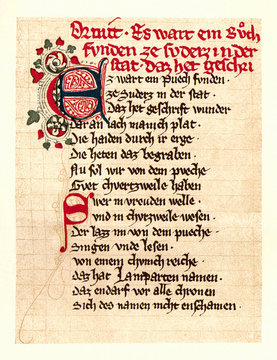 Ortnit · Es wart ein Bůch
funden ze Suders in der
stat · daz het geschri
Ez wart ein Puech funden ·
ze Suders in der stat ·
Daz het geschrift wunder
Dar an lach manich plat ·
Die haiden durch ir erge ·
Die heten daz begraben ·
Nu sol wir von dem pueche ·
Guet churtzweile haben
Swer in vreuden welle ·
und in churtzweile wesen ·
Der lazz im von dem pueche ·
Singen unde lesen ·
von einem chunich reiche ·
daz hat Lamparten namen ·
Daz endarf vor alle chronen
Sich des namen nicht enschamen ·